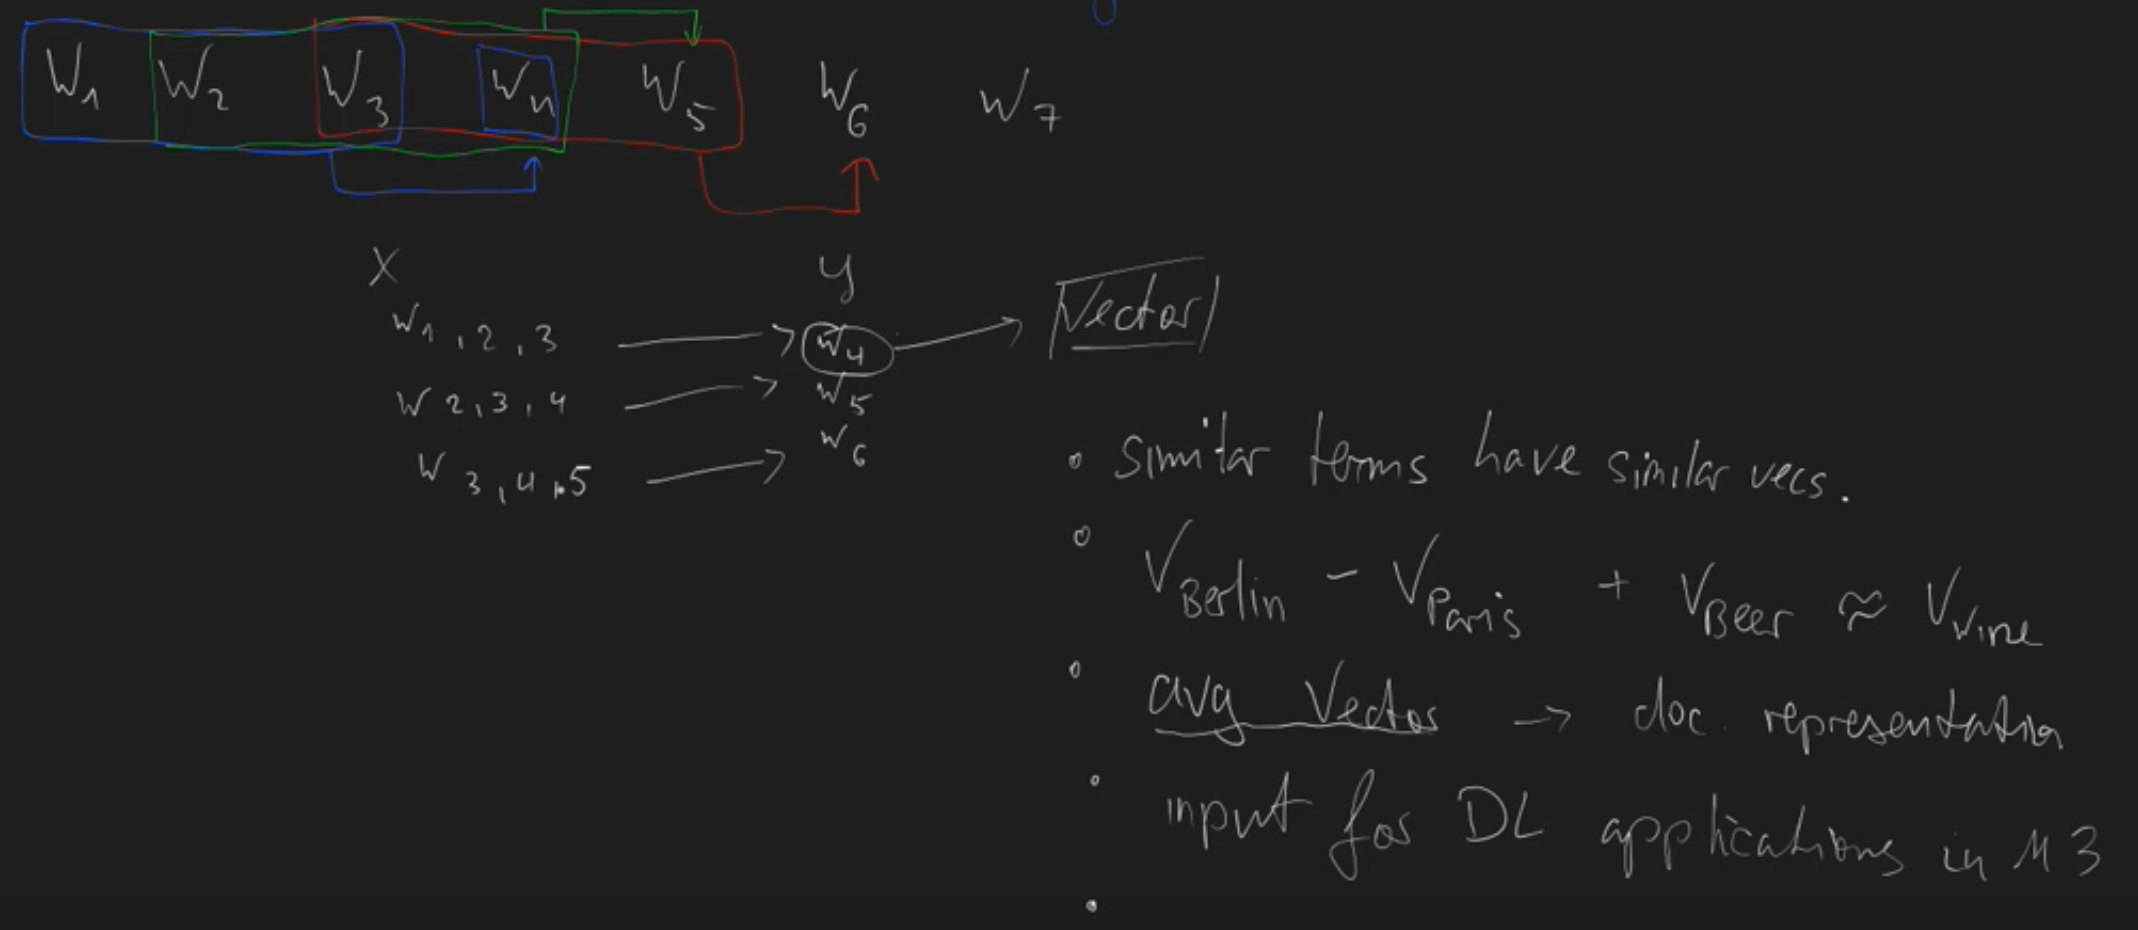 W1 W2 W3 W4 W5 W6 W7
X y
W1,2,3 W4 Vector
W2,3,4 W5
W3,4,5 W6
• similar terms have similar vecs.
• VBerlin - VParis + VBeer ≈ VWine
• avg Vector → doc. representation
• input for DL applications in M3
•